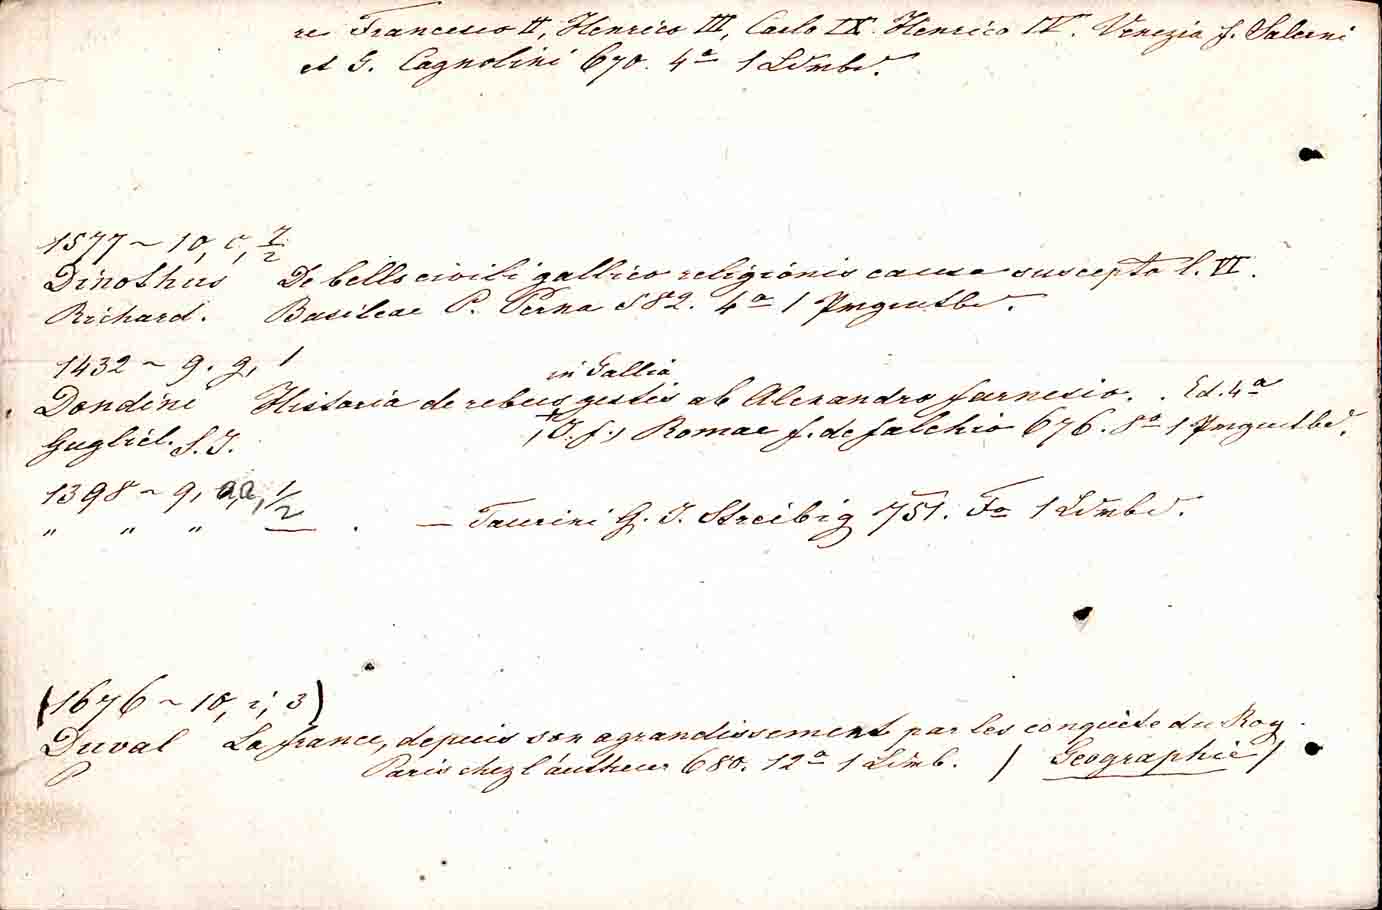 re Francesco II, Henrico III, Carlo IX. Henrico IV. Venezia f. Salerni
et G. Cagnolini 670. 4a 1 Ldrnbd.
1577 ~ 10, c, 7/2
Dinothus De bello civili gallico religionis causa suscepto l. VI.
Richard. Basileae P. Perna 582. 4a 1 Prngmtbd.
1432 ~ 9. g, 1
in Gallia
Dondini Historia de rebus gestis ab Alexandro farnesio. . Ed. 4a
Gugliel. S. J. Romae f. de falchis 676. 8a 1 Prngmtbd.
1398 ~ 9, a, 1/2
" " " — . — Taurini G. J. Streibig 751. Fo 1 Ldrnbd.
(1676 ~ 10, i, 3)
Duval La france, depuis son agrandissement par les conquête du Roy.
P Paris chez l'autheur 680. 12a 1 Ldrnb. / Geographie /